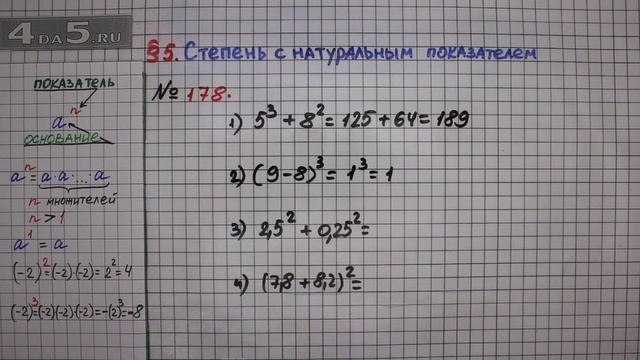 4 DA 5.RU
§5. Степень с натуральным показателем
показатель
aⁿ
основание
aⁿ = a·a·...·a
n множителей
n > 1
a¹ = a
(-2)² = (-2)·(-2) = 2² = 4
(-2)³ = (-2)(-2)·(-2) = -(2)³ = -8
№ 178.
1) 5³ + 8² = 125 + 64 = 189
2) (9 - 8)³ = 1³ = 1
3) 2,5² + 0,25² =
4) (7,8 + 8,2)² =